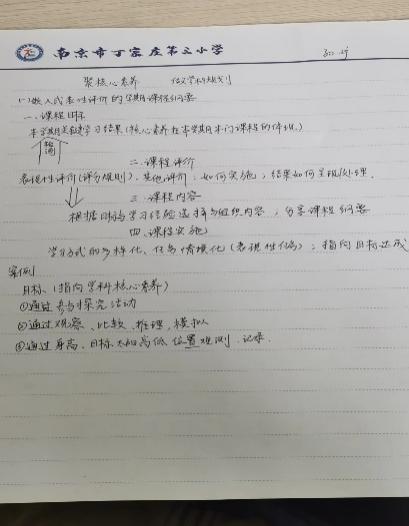 南京市丁家庄第二小学
聚核心素养 做学科规划
(一)嵌入式表性评价的学期课程纲要
一、课程目标
本学期关键学习结果(核心素养在本学期本门课程的体现)
二、课程评价
表现性评价(评分规则)、其他评价:如何实施,结果如何呈现/处理.
三、课程内容
根据目标与学习经验选择与组织内容,分享课程纲要
四、课程实施
学习方式的多样化、任务情境化(表现性任务);指向目标达成
案例
目标(指向学科核心素养)
①通过参与探究活动
②通过观察、比较、推理、模拟
③通过身高、目标 高低 位置观测、记录.